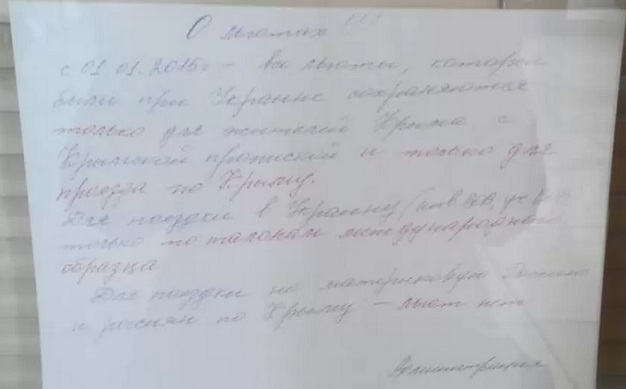 О льготах (!!)
с 01.01.2015г – все льготы, которые
были при Украине сохраняются
только для жителей Крыма с
Крымской пропиской и только для
проезда по Крыму.
Для поездки в Украину (инв. ВОВ, уч.
только по талонам международного
образца
Для поездки на материковую Россию
и россиян по Крыму – льгот нет
Администрация